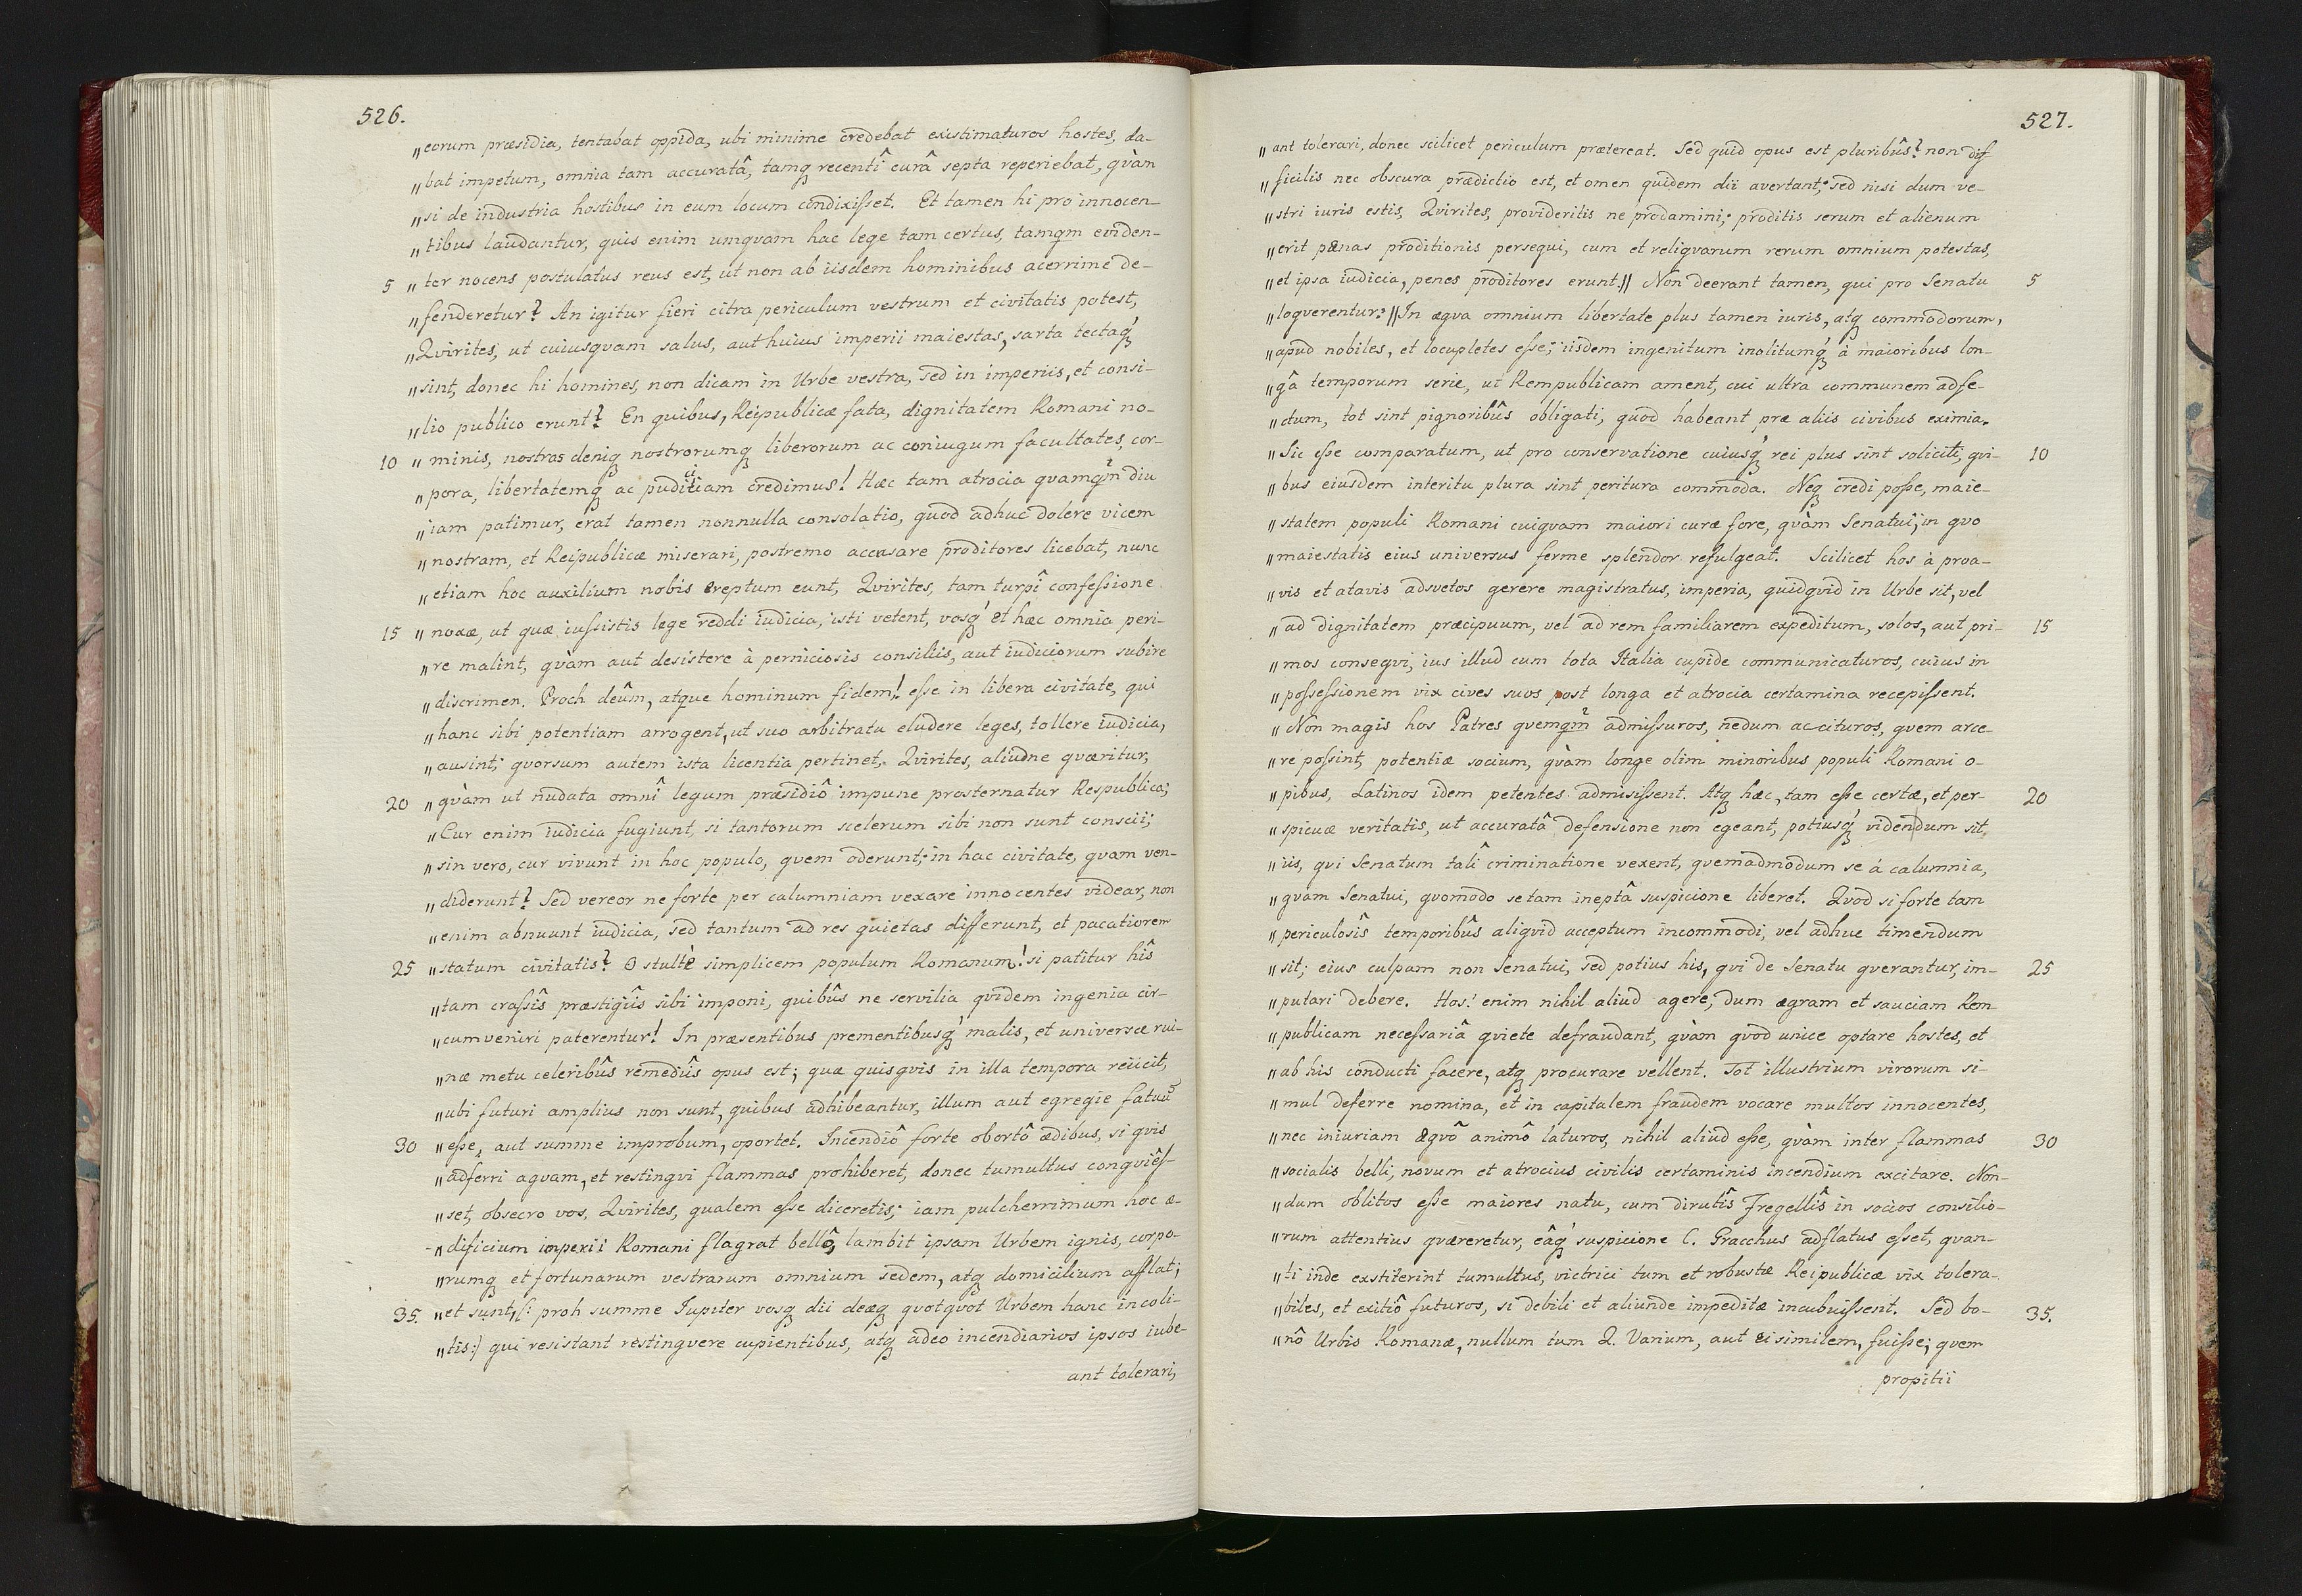 526.
„eorum præsidia, tentabat oppida, ubi minime credebat existimaturos hostes, da-
„bat impetum, omnia tam accuratâ, tamq̃ recentî curâ septa reperiebat, qvàm
„si de industria hostibus in eum locum condixiſset. Et tamen hi pro innocen-
„tibus laudantur, quis enim umqvam hac lege tam certus, tamqm eviden-
5 „ter nocens postulatus reus est, ut non ab iisdem hominibus acerrime de-
„fenderetur? An igitur fieri citra periculum vestrum et civitatis potest,
„Qvirites, ut cuiusqvam salus, aut huius imperii maiestas, sarta tectaq́
„sint, donec hi homines, non dicam in Urbe vestra, sed in imperiis, et consi-
„lio publico erunt? En quibus, Reipublicæ fata, dignitatem Romani no-
10 „minis, nostras deniq nostrorumq liberorum ac coniugum facultates, cor-
„pora, libertatemq ac pudicitiam credimus! Hæc tam atrocia qvamqm̃ diu
„iam patimur, erat tamen nonnulla consolatio, quod adhuc dolere vicem
„nostram, et Reipublicæ miserari, postremo accusare proditores licebat, nunc
„etiam hoc auxilium nobis ereptum eunt, Qvirites, tam turpî confeſsione
15 „noxæ, ut quæ iuſsistis lege reddi iudicia, isti vetent, vosq́ et hæc omnia peri-
„re malint, qvàm aut desistere à perniciosis consiliis, aut iudiciorum subire
„discrimen. Proch deûm, atque hominum fidem! eſse in libera civitate, qui
„hanc sibi potentiam arrogent, ut suo arbitratu eludere leges, tollere iudicia,
„ausint; qvorsum autem ista licentia pertinet, Qvirites, aliudne qværitur,
20 „qvàm ut nudata omnî legum præsidiô impune prosternatur Respublica;
„Cur enim iudicia fugiunt, si tantorum scelerum sibi non sunt conscii;
„sin vero, cur vivunt in hoc populo, qvem oderunt; in hac civitate, qvam ven-
„diderunt? Sed vereor ne forte per calumniam vexare innocentes videar, non
„enim abnuunt iudicia, sed tantum ad res quietas differunt, et pacatiorem
25 „statum civitatis? O stultè simplicem populum Romanum! si patitur hîs
„tam craſsîs præstigiîs sibi imponi, quibûs ne servilia qvidem ingenia cir-
„cumveniri paterentur! In præsentibus prementibusq́ malis, et universæ rui-
„næ metu celeribûs remediîs opus est; quæ quisqvis in illa tempora reiicit,
„ubi futuri amplius non sunt, quibus adhibeantur, illum aut egregie fatuũ
30 „eſse, aut summe improbum, oportet. Incendiô forte obortô ædibus, si qvis
„adferri aqvam, et restingvi flammas prohiberet, donec tumultus conqviêſ-
„set, obsecro vos, Qvirites, qualem eſse diceretis; iam pulcherrimum hoc æ-
-„dificium imperii Romani flagrat bellô, lambit ipsam Urbem ignis, corpo-
„rumq et fortunarum vestrarum omnium sedem, atq domicilium afflat;
35. „et sunt, (: proh summe Jupiter vosq dii deæq qvotqvot Urbem hanc incoli-
„tis:) qui resistant restingvere cupientibus, atq adeo incendiarios ipsos iube-
ant tolerari,
527.
„ant tolerari, donec scilicet periculum prætereat. Sed quid opus est pluribûs? non dif
„ficilis nec obscura prædictio est, et omen quidem dii avertant; sed nisi dum ve-
„stri iuris estis, Qvirites, provideritis ne prodamini; proditis serum et alienum
„erit pænas proditionis persequi, cum et reliqvarum rerum omnium potestas,
„et ipsa iudicia, penes proditores erunt.// Non deerant tamen, qui pro Senatu 5
„loqverentur: //In æqva omnium libertate plus tamen iuris, atq commodorum,
„apud nobiles, et locupletes eſse; iisdem ingenitum inolitumq́ à maioribus lon-
„gâ temporum serie, ut Rempublicam ament, cui ultra communem adfe-
„ctum, tot sint pignoribûs obligati, quod habeant præ aliis civibus eximia.
„Sic eſse comparatum, ut pro conservatione cuiusq́ rei plus sint soliciti, qvi- 10
„bus eiusdem interitu plura sint peritura commoda. Neq credi poſse, maie-
„statem populi Romani cuiqvam maiori curæ fore, qvàm Senatui, in qvo
„maiestatis eius universus ferme splendor refulgeat. Scilicet hos à proa-
„vis et atavis adsvetos gerere magistratus, imperia, quidqvid in Urbe sit, vel
„ad dignitatem præcipuum, vel ad rem familiarem expeditum, solos, aut pri- 15
„mos conseqvi, ius illud cum tota Italia cupide communicaturos, cuius in
„poſseſsionem vix cives suos post longa et atrocia certamina recepiſsent.
„Non magis hos Patres qvemqm̃ admiſsuros, nedum accituros, qvem arce-
„re poſsint, potentiæ socium, qvàm longe olim minoribus populi Romani o-
„pibus, Latinos idem petentes admisiſsent. Atq hæc, tam eſse certæ, et per- 20
„spicuæ veritatis, ut accuratâ defensione non egeant, potiusq́ videndum sit,
„iis, qvi Senatum talî criminatione vexent, qvemadmodum se á calumnia,
„qvam Senatui, qvomodo se tam ineptâ suspicione liberet. Qvod si forte tam
„periculosîs temporibûs aliqvid acceptum incommodi, vel adhuc timendum
„sit; eius culpam non Senatui, sed potius his, qvi de Senatu qverantur, im- 25
„putari debere. Hos! enim nihil aliud agere, dum ægram et sauciam Rem
„publicam neceſsariâ qviete defraudant, qvàm qvod unice optare hostes, et
„ab his conducti facere, atq procurare vellent. Tot illustrium virorum si-
„mul deferre nomina, et in capitalem fraudem vocare multos innocentes,
„nec iniuriam æqvô animô laturos, nihil aliud eſse, qvàm inter flammas 30
„socialis belli, novum et atrocius civilis certaminis incendium excitare. Non-
„dum oblitos eſse maiores natu, cum dirutîs Fregellîs in socios consilio-
„rum attentius qværeretur, eâq́ suspicione C. Gracchus adflatus eſset, qvan-
„ti inde exstiterint tumultus, victrici tum et robustæ Reipublicæ vix tolera-
„biles, et exitiô futuros, si debili et aliunde impeditæ incubuiſsent. Sed bo- 35.
„nô Urbis Romanæ, nullum tum Q. Varium, aut ei similem, fuiſse; qvem
propitii